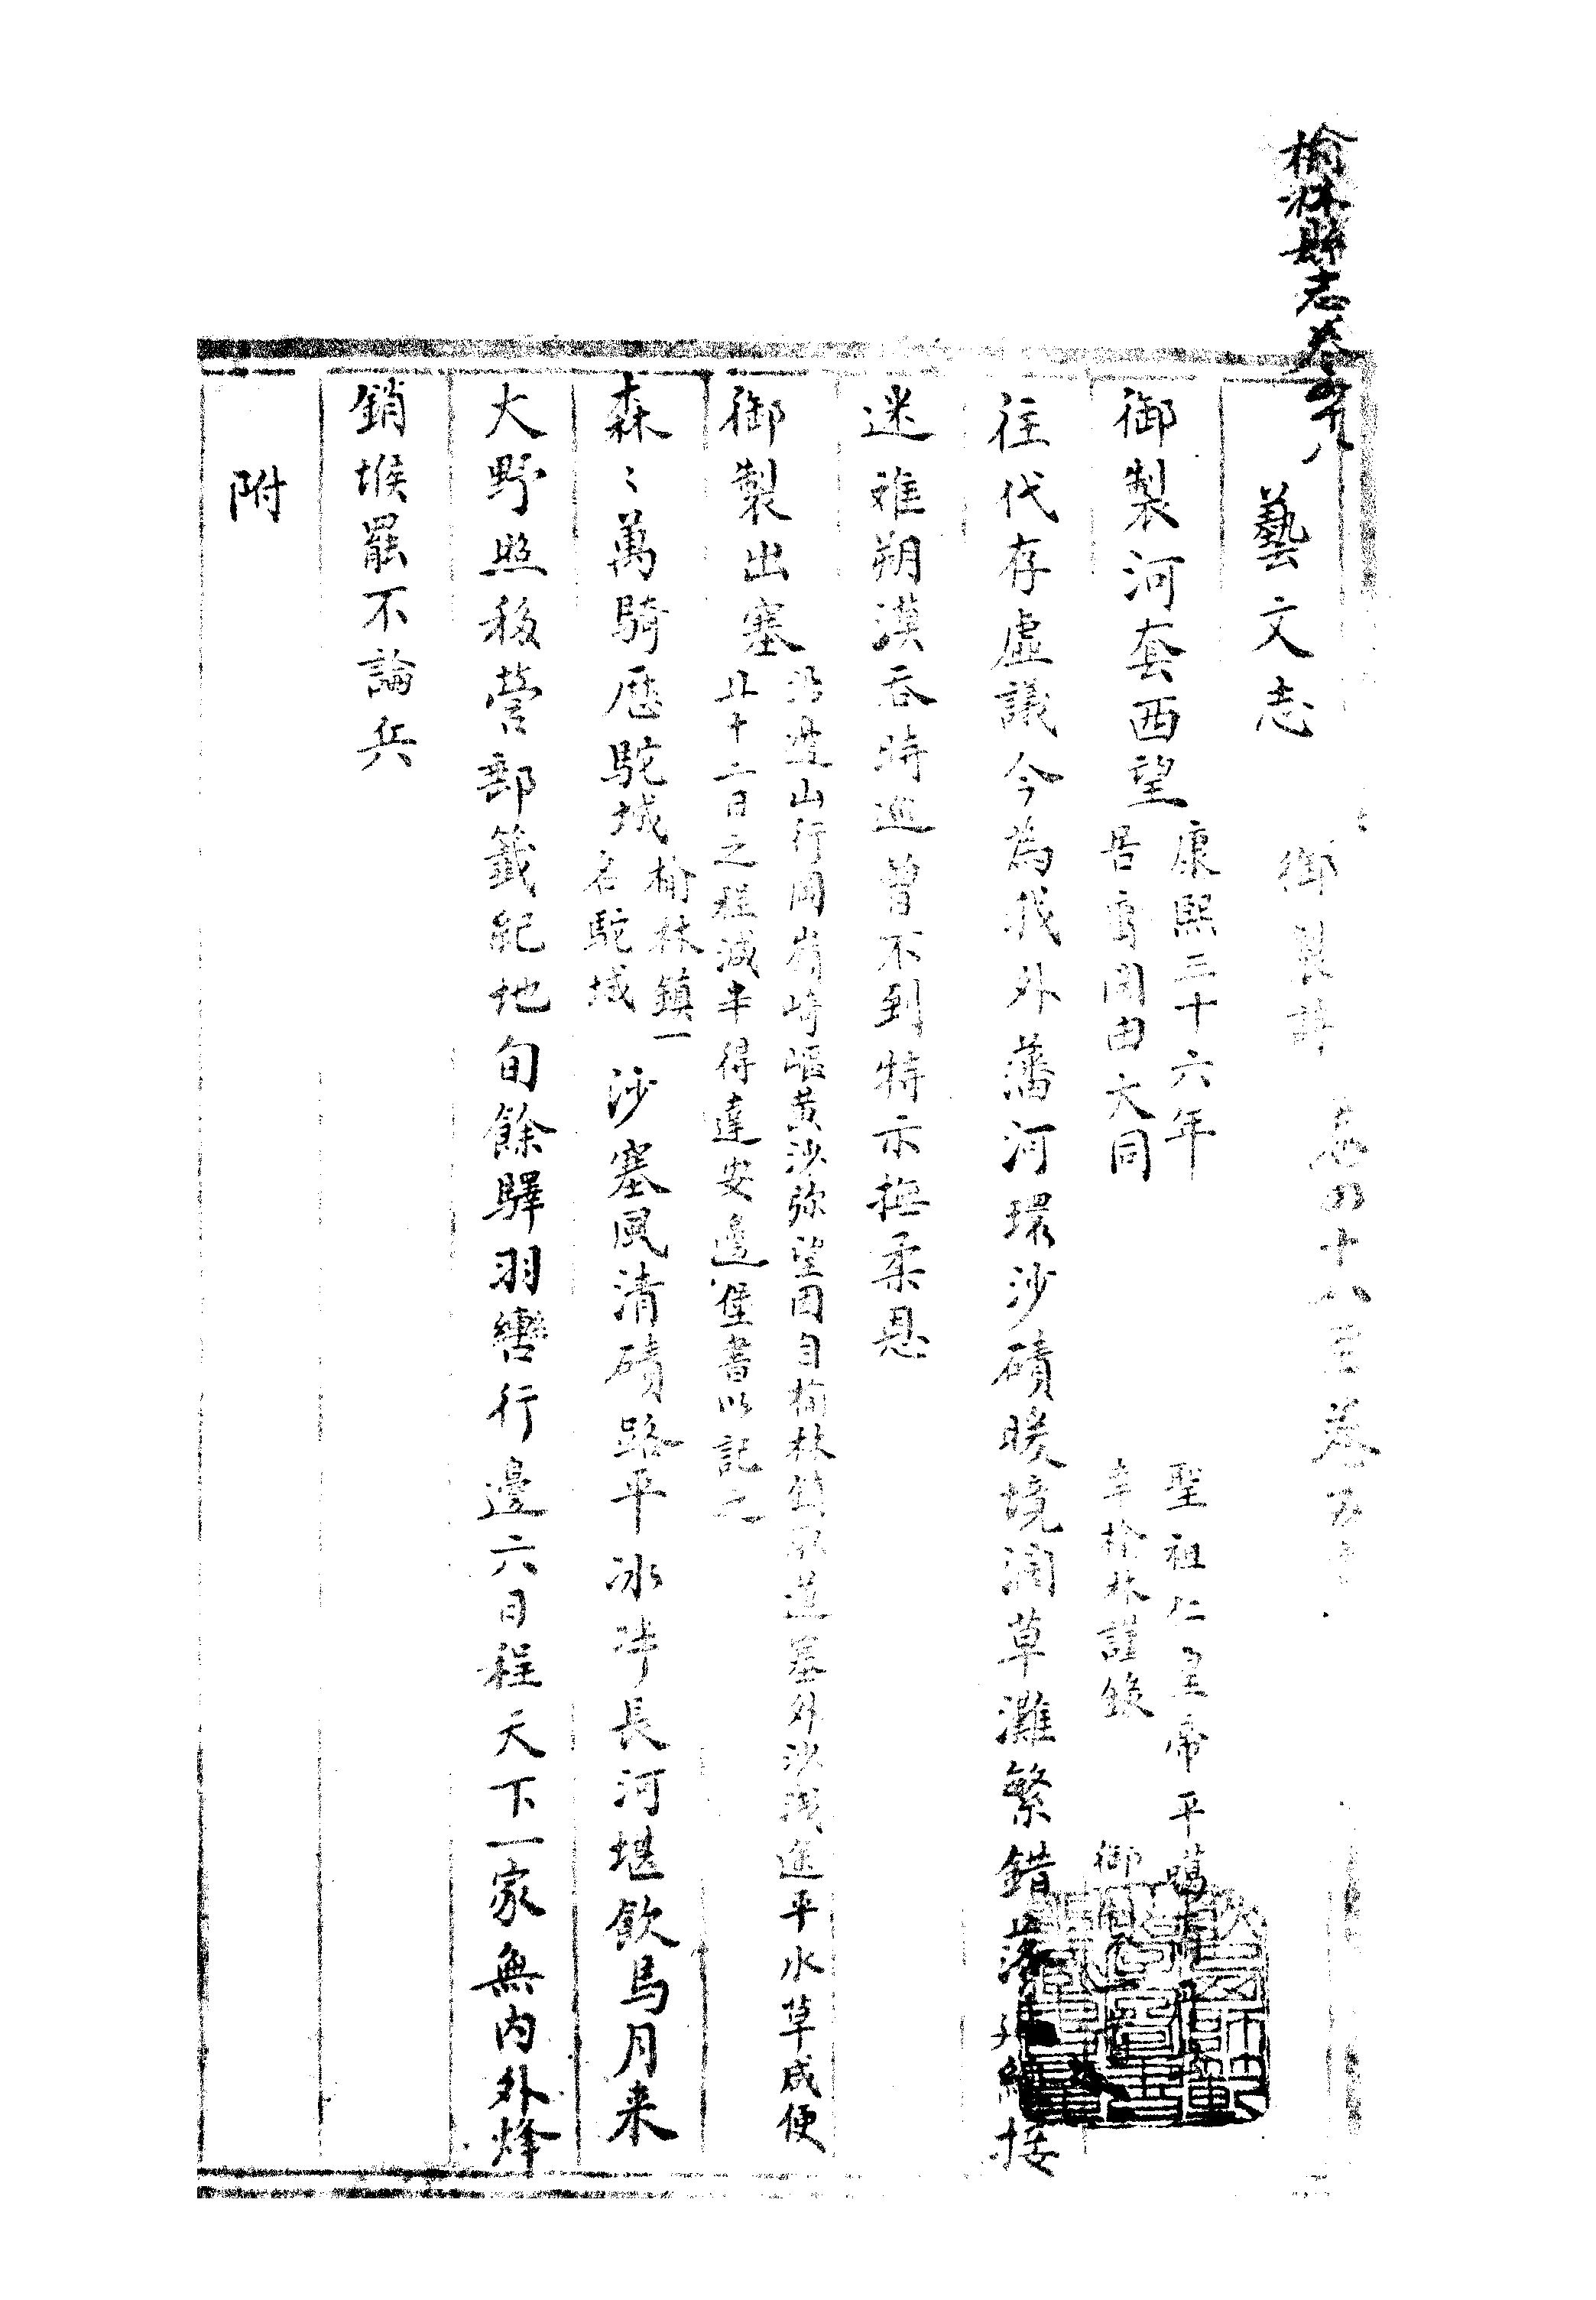 榆林縣志卷四十八
藝文志 御製詩 卷四十八至卷五十
御製河套西望 康熙三十六年 聖祖仁皇帝平噶
居膚關由大同 幸榆林謹錄 御
往代存虛議今為我外藩河環沙磧暖境潤草灘繁錯落外接
迷難朔漠吞時巡曾不到特示撫柔恩
御製出塞 沿邊山行岡崗崎嶇黃沙弥望因自榆林道塞外沙淺途平水草咸便
廿十二日之程減半得達安邊堡書以記之
森〻萬騎歷駝城 榆林鎮一
名駝城 沙塞風清磧路平冰泮長河堪飲馬月来
大野照移營部籤紀地旬餘驛羽轡行邊六日程天下一家無内外烽
銷堠罷不論兵
附